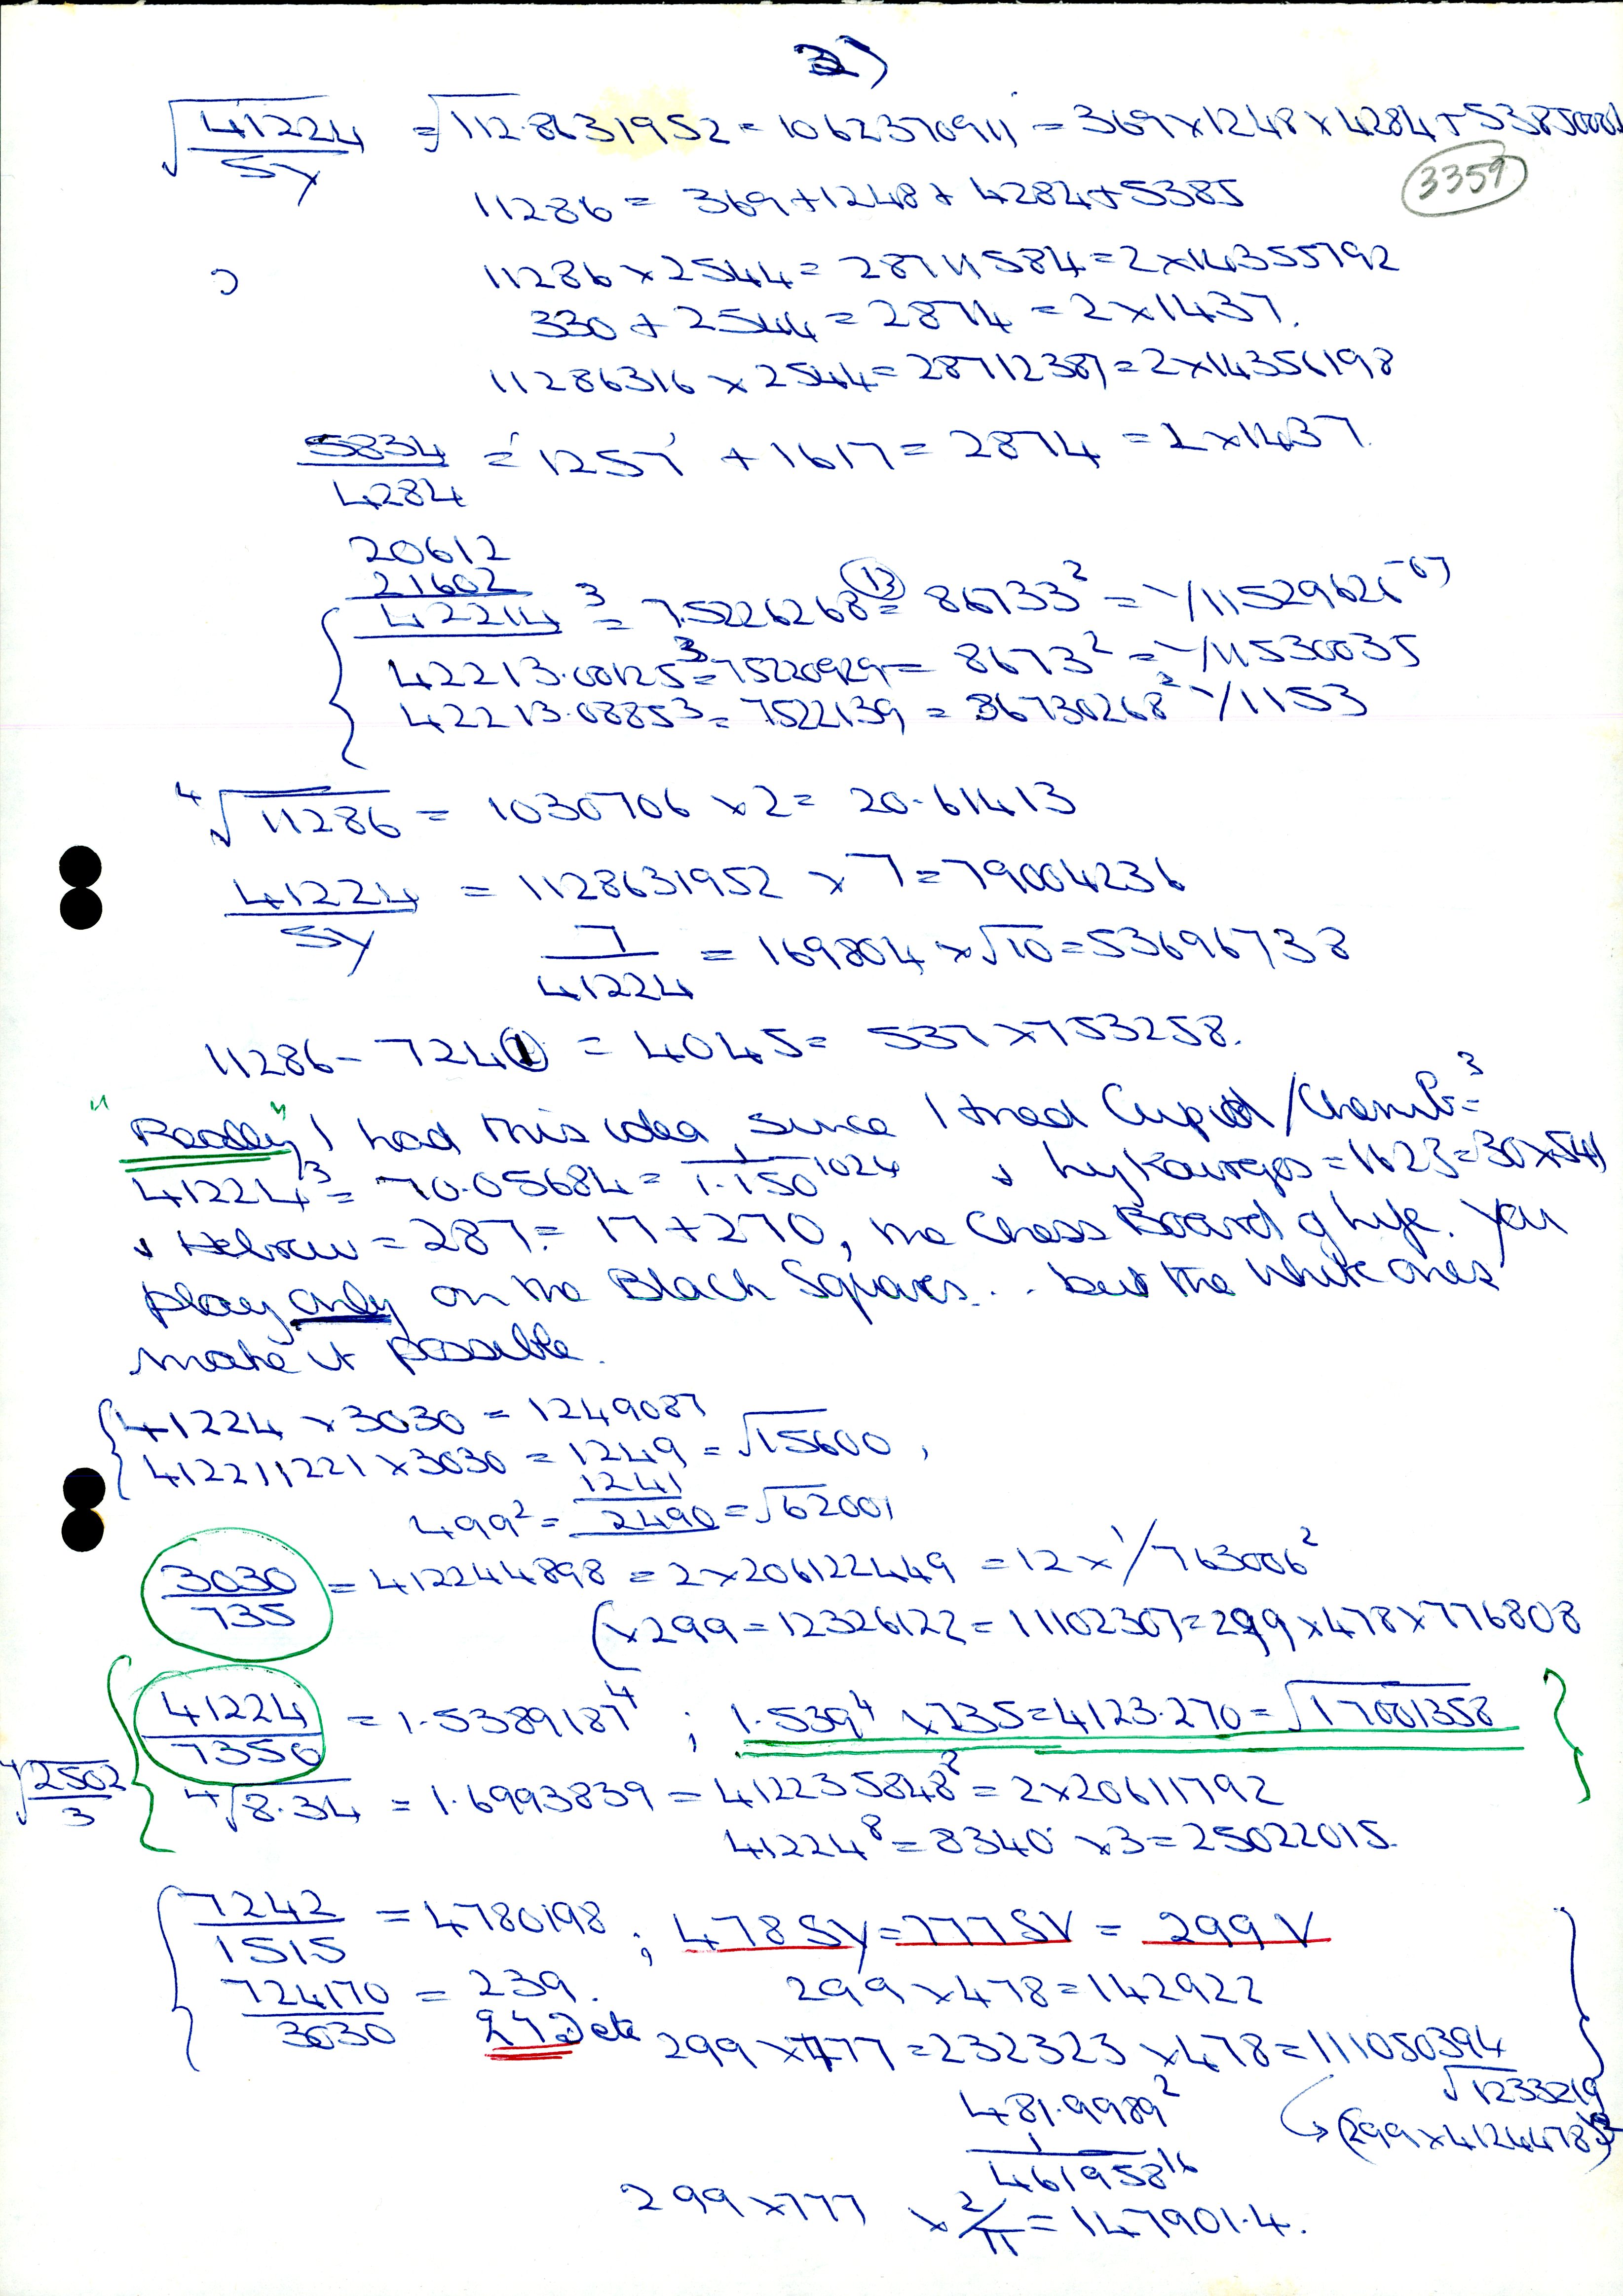 2)
√41224/SY = √112.8631952 = 1062370911 = 369 x 1248 x 4284 + 53850000
3359
11286 = 369 + 1248 + 4284 + 5385
11286 x 2544 = 28711584 = 2 x 14355792
330 + 2544 = 2874 = 2 x 1437.
11286316 x 2544 = 28712387 = 2 x 14356198
5834/4284 = '1257' + 1617 = 2874 = 2 x 1437.
20612
21602
42214³ = 7.5226268⑬ = 86733² = 1/11529626⁻⁰⁷
42213.00125³ = 75220929 = 8673² = 1/11530035
42213.0885³ = 7522139 = 86730268² 1/1153
⁴√11286 = 1030706 x 2 = 20.61413
41224/SY = 1128631952 x 7 = 79004236
7/41224 = 169804 x √10 = 53696738
11286 - 7241 = 4045 = 537 x 753258.
"Really" I had this idea, since I tried Cupid/Cherub³ =
41224³ = 70.05684 = 1/1.150¹⁰²⁴ & Lykourgos = 1623 = 30 x 541
& Hebrew = 287 = 17 + 270, the Chess Board of life. You
play only on the Black Squares... but the white ones
make it possible.
41224 x 3030 = 1249087
412211221 x 3030 = 1249 = √15600,
499² = 1241/2490 = √62001
3030/735 = 412244898 = 2 x 206122449 = 12 x 1/763006²
(x 299 = 12326122 = 11102307 = 299 x 478 x 776808
41224/7350 = 1.5389187⁴ ; 1.539⁴ x 735 = 4123.270 = √17001358
⁴√2502/3
⁴√8.34 = 1.6993839 = 412235848⁸ = 2 x 20611792
41224⁸ = 8340 x 3 = 25022015.
7242/1515 = 4780198 ; 478 SY = 777 SV = 299 V
724170/3030 = 239. 299 x 478 = 142922
299 x 777 = 232323 x 478 = 111050394
√1233219
481.9989²
(299 x 4124478)
1/461958¹⁶
299 x 777 x 2/π = 147901.4.